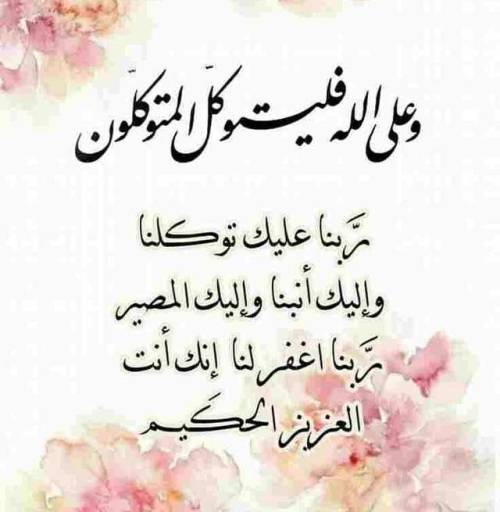 وعلى الله فليتوكل المتوكلون
رَّبنا عليك توكلنا
وإليك أنبنا وإليك المصير
رَّبنا اغفر لنا إنك أنت
العزيز الحكَيم